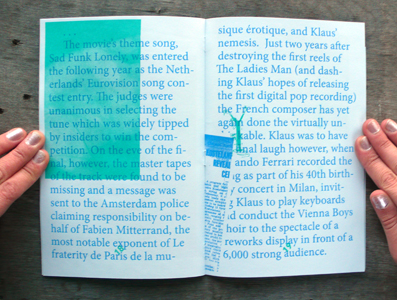 The movie's theme song,
Sad Funk Lonely, was entered
the following year as the Neth-
erlands' Eurovision song con-
test entry. The judges were
unanimous in selecting the
tune which was widely tipped
by insiders to win the com-
petition. On the eve of the fi-
nal, however, the master tapes
of the track were found to be
missing and a message was
sent to the Amsterdam police
claiming responsibility on be-
half of Fabien Mitterrand, the
most notable exponent of Le
fraterity de Paris de la mu-
sique érotique, and Klaus'
nemesis. Just two years after
destroying the first reels of
The Ladies Man (and dash-
ing Klaus' hopes of releasing
the first digital pop recording)
the French composer has yet
again done the virtually un-
able. Klaus was to have
nal laugh however, when
ando Ferrari recorded the
g as part of his 40th birth-
y concert in Milan, invit-
g Klaus to play keyboards
d conduct the Vienna Boys
hoir to the spectacle of a
reworks display in front of a
6,000 strong audience.